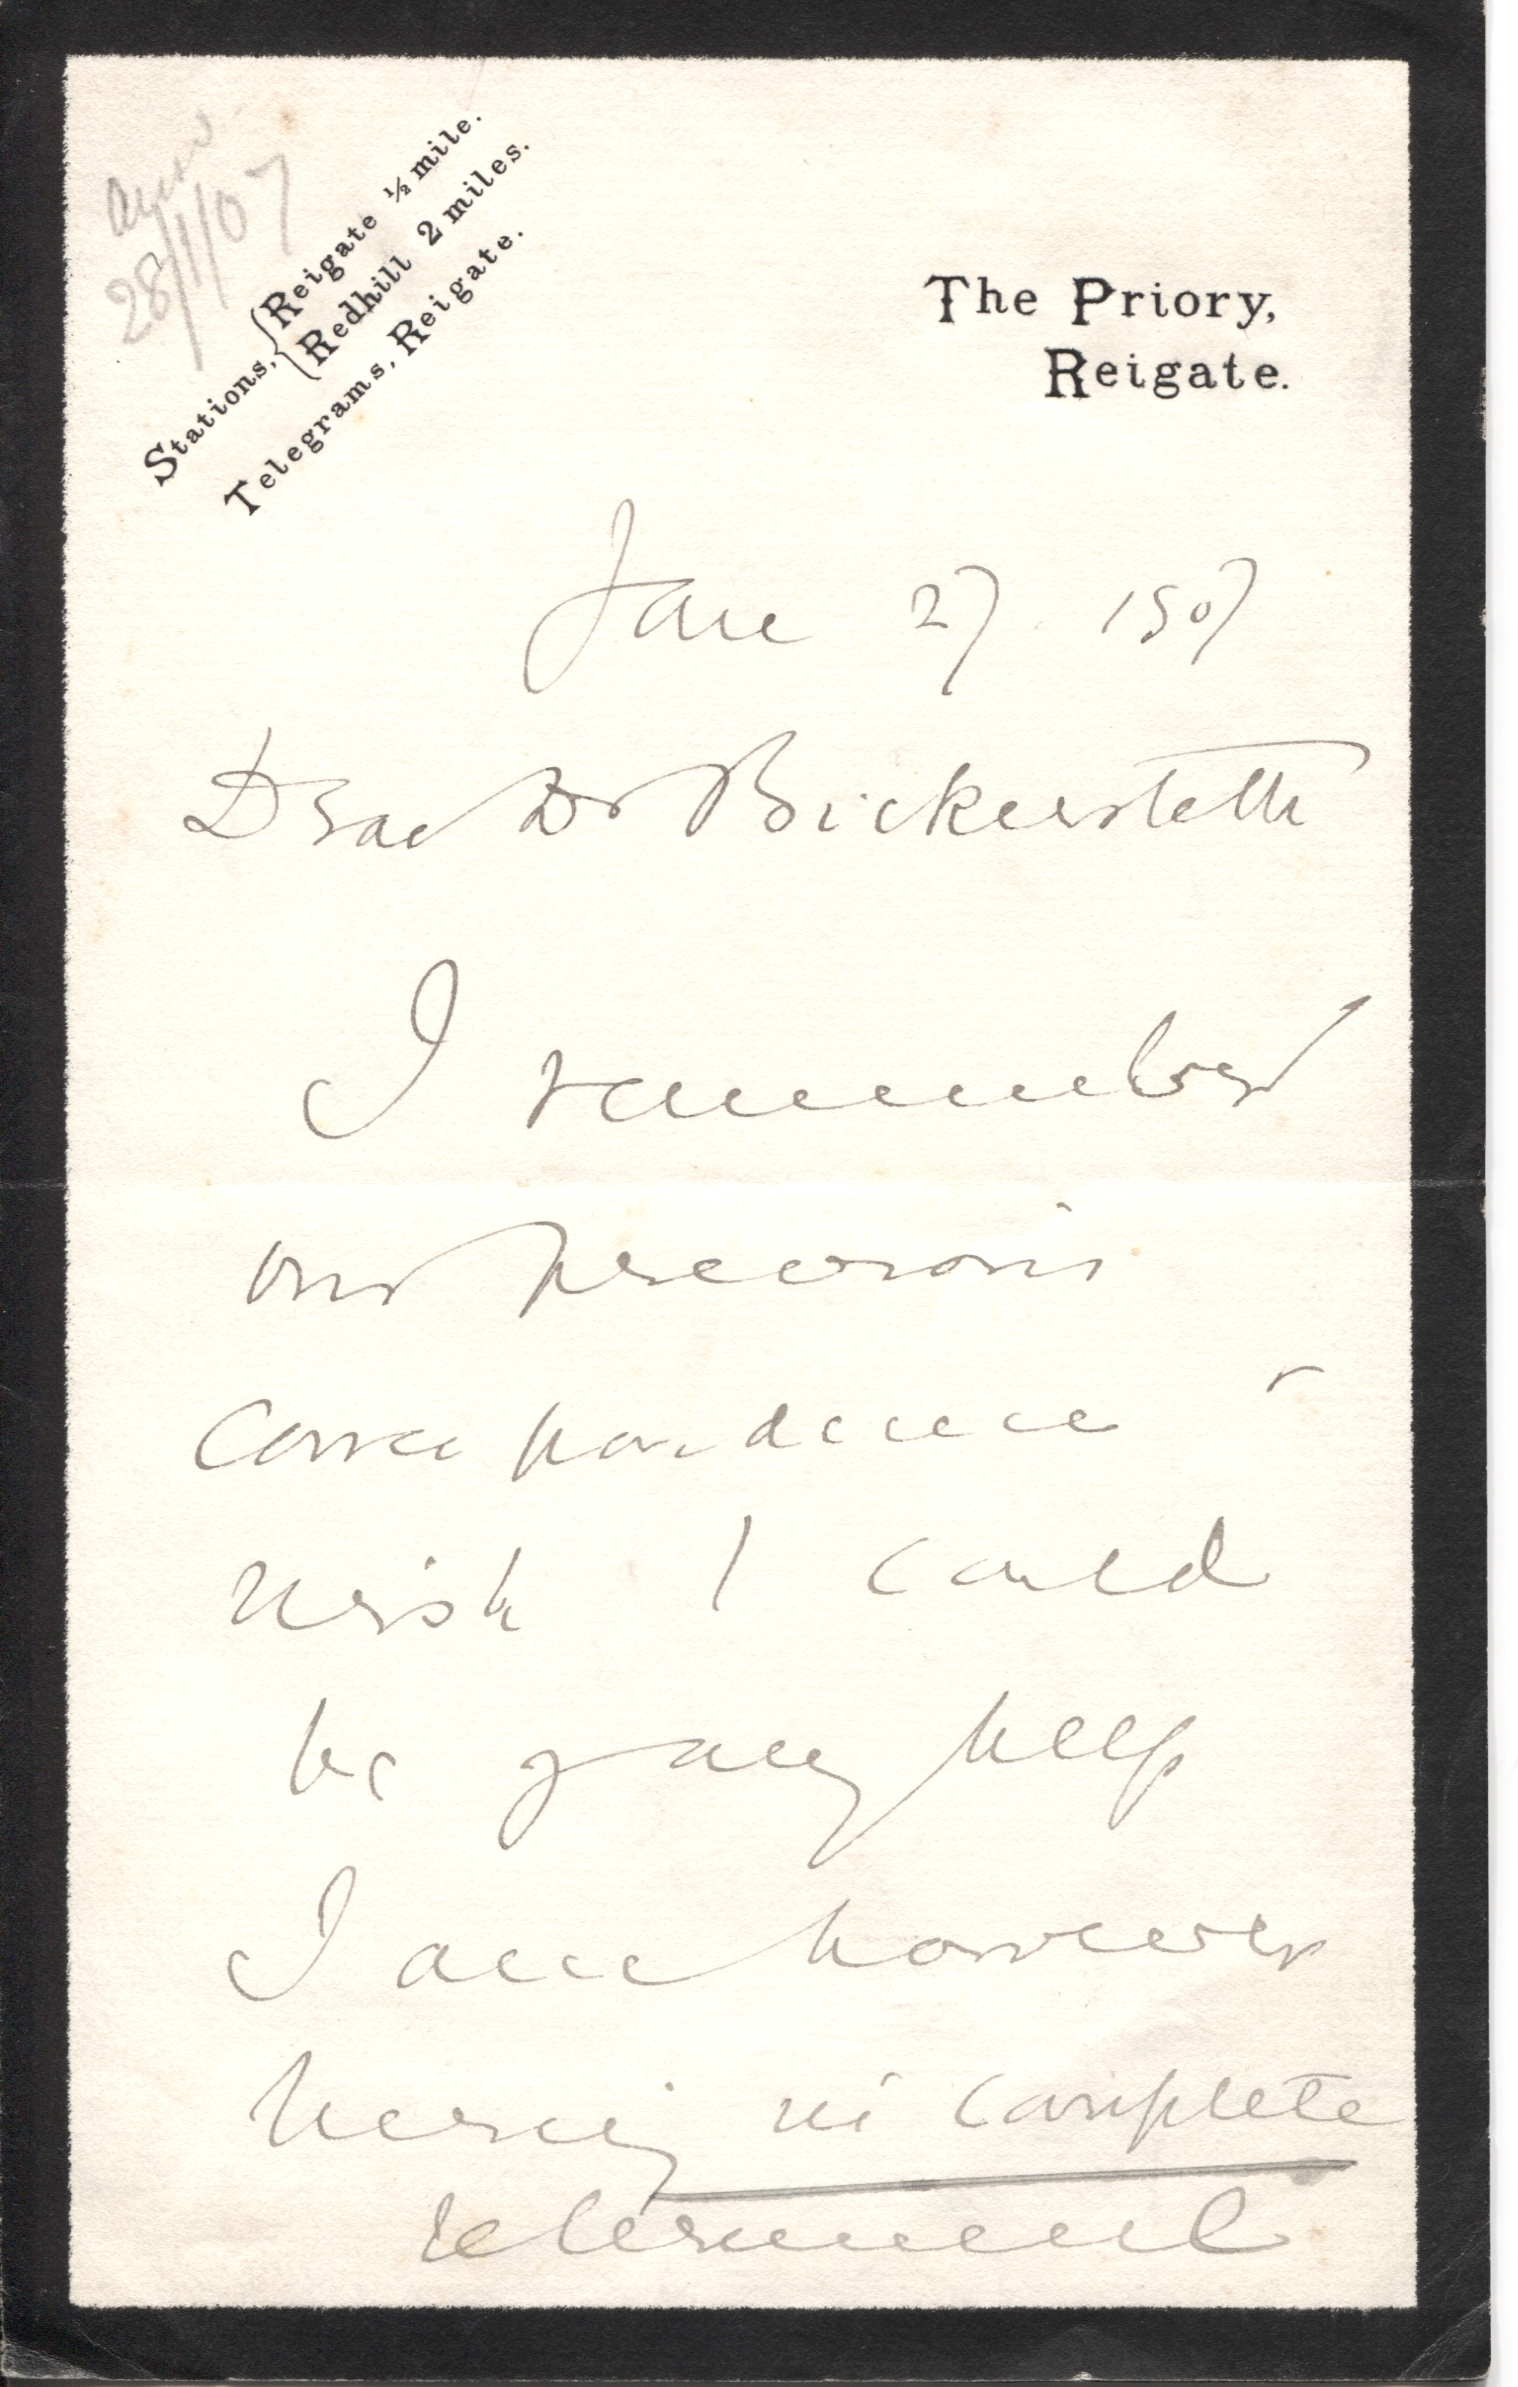 28/1/07
Stations, { Reigate ½ mile.
Redhill 2 miles.
Telegrams, Reigate.
The Priory,
Reigate.
Jan 27 1907
Dear Dr Bickersteth
I remember
our previous
correspondence &
wish I could
be of any help
I am however
living in complete
retirement